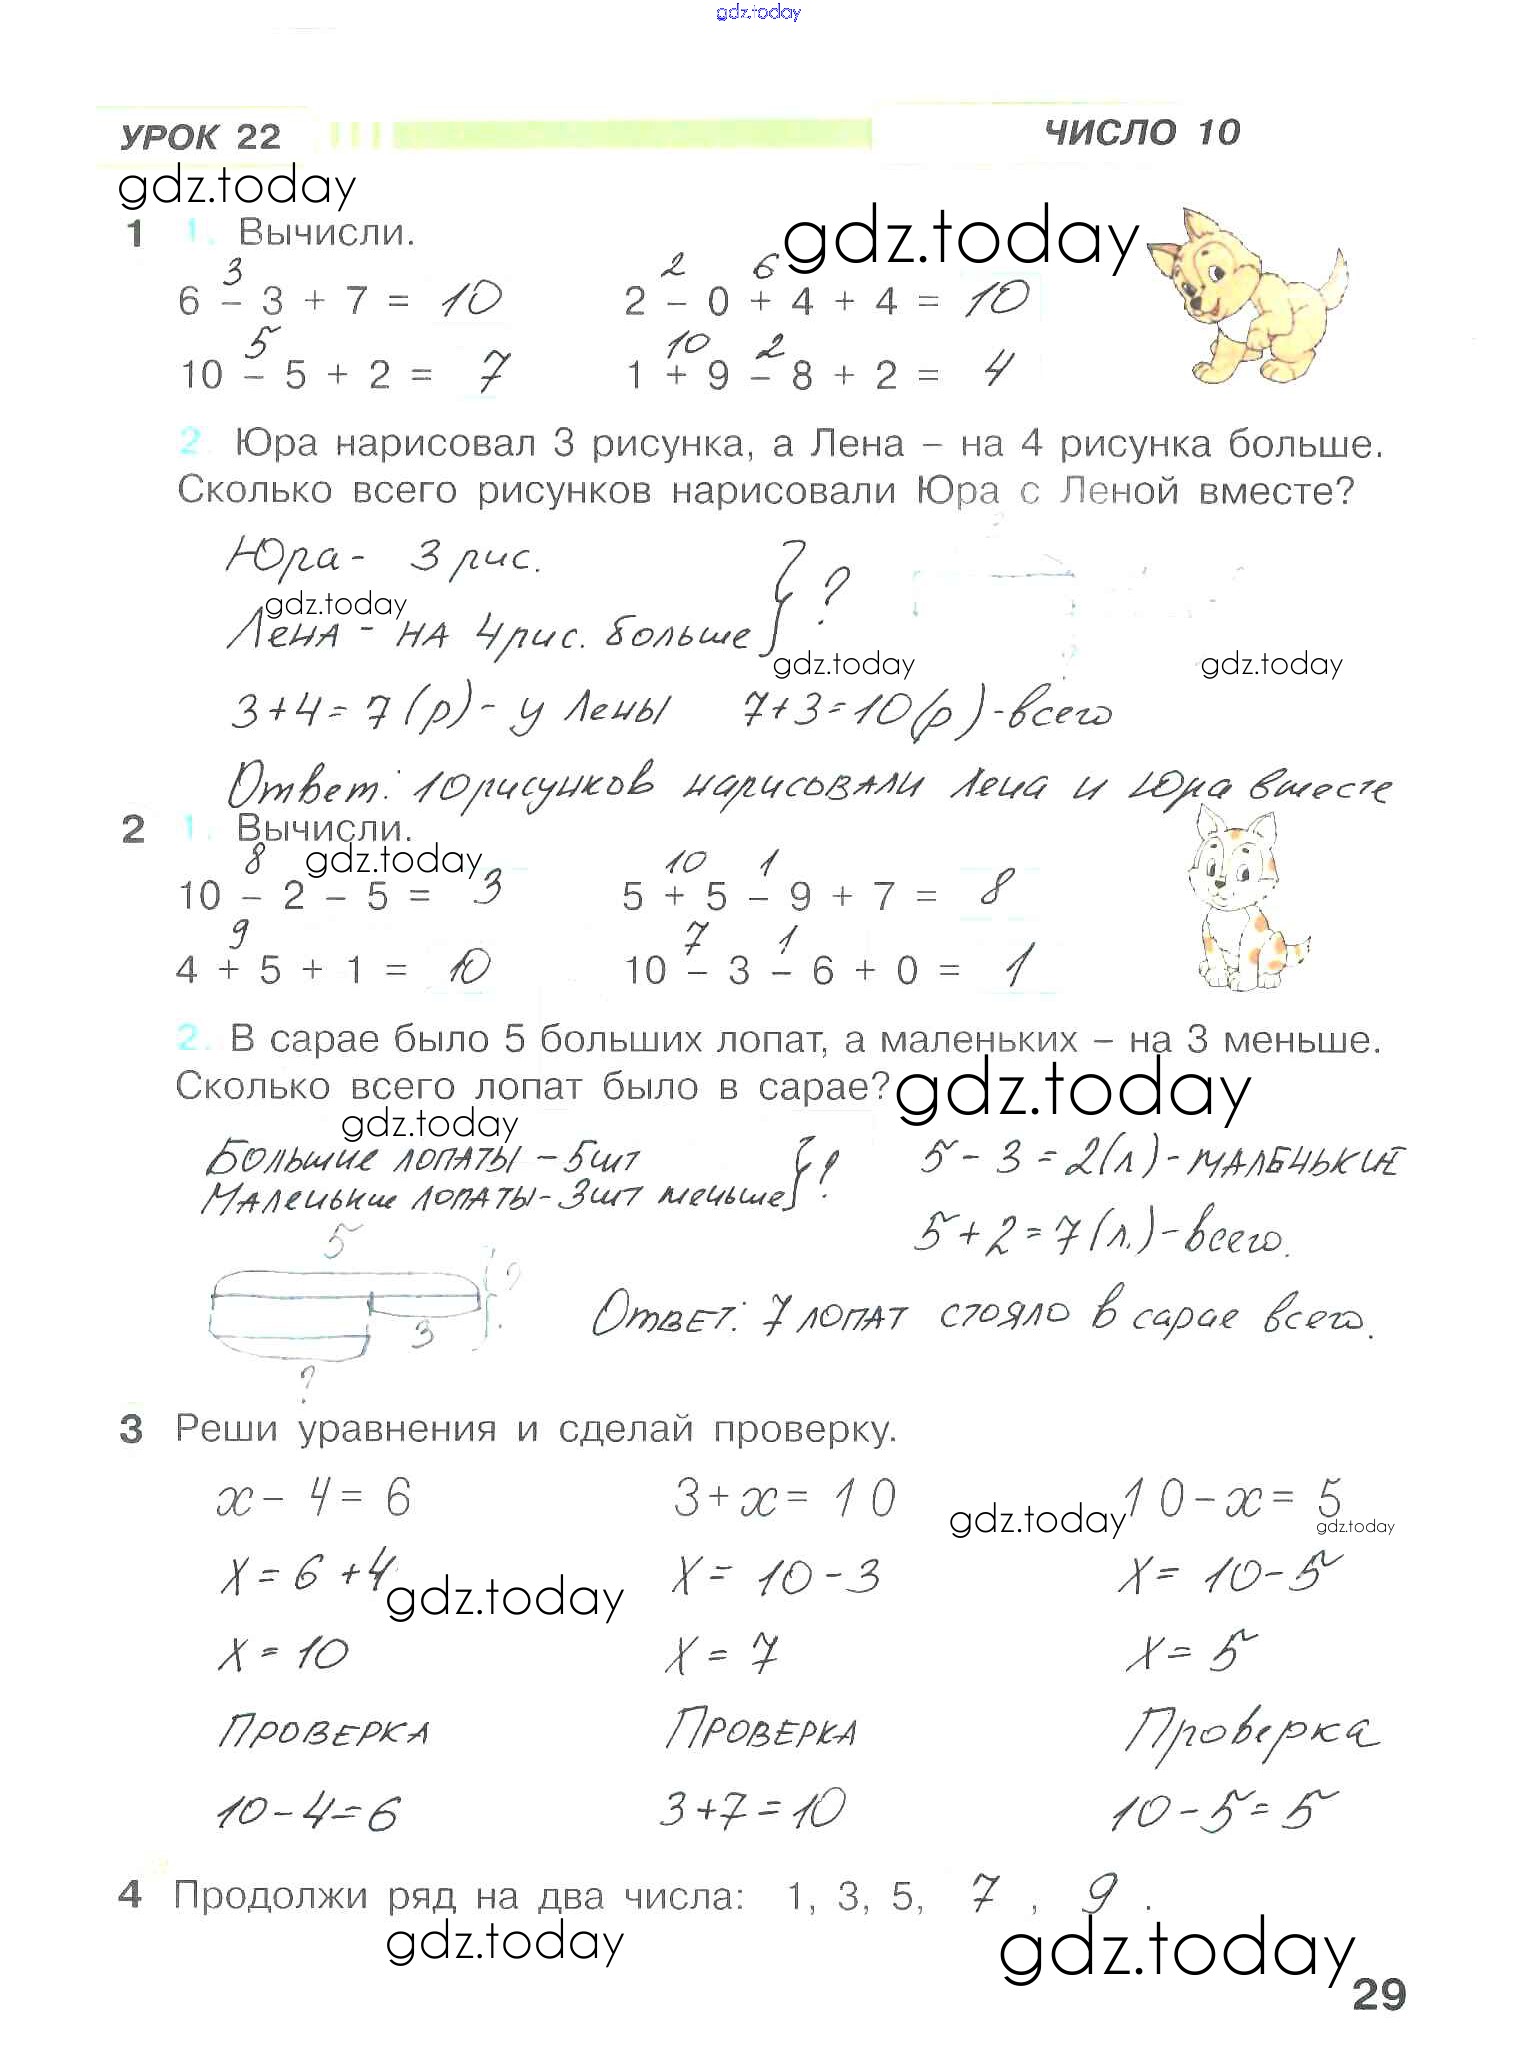 gdz.today
УРОК 22 ЧИСЛО 10
gdz.today
1 1. Вычисли. gdz.today
3 2 6
6 - 3 + 7 = 10 2 - 0 + 4 + 4 = 10
5 10 2
10 - 5 + 2 = 7 1 + 9 - 8 + 2 = 4
2. Юра нарисовал 3 рисунка, а Лена – на 4 рисунка больше.
Сколько всего рисунков нарисовали Юра с Леной вместе?
Юра - 3 рис.
gdz.today
Лена - на 4 рис. больше } ?
gdz.today gdz.today
3+4=7(р)-у Лены 7+3=10(р)-всего
Ответ: 10 рисунков нарисовали Лена и Юра вместе
2 1. Вычисли.
8 gdz.today 10 1
10 - 2 - 5 = 3 5 + 5 - 9 + 7 = 8
9 7 1
4 + 5 + 1 = 10 10 - 3 - 6 + 0 = 1
2. В сарае было 5 больших лопат, а маленьких – на 3 меньше.
Сколько всего лопат было в сарае? gdz.today
gdz.today
Большие лопаты - 5шт 5 - 3 = 2(л)-маленькие
Маленькие лопаты - 3шт меньше } ?
5 5+2=7(л.)-всего.
?
3 Ответ: 7 лопат стояло в сарае всего.
?
3 Реши уравнения и сделай проверку.
x - 4 = 6 3 + x = 10 10 - x = 5
gdz.today gdz.today
X = 6 + 4 X = 10 - 3 X = 10 - 5
gdz.today
X = 10 X = 7 X = 5
Проверка Проверка Проверка
10-4=6 3+7=10 10-5=5
4 Продолжи ряд на два числа: 1, 3, 5, 7 , 9 .
gdz.today gdz.today
29